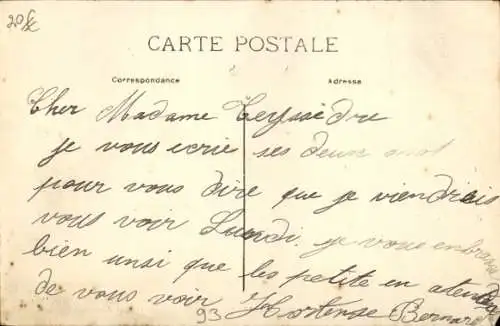 CARTE POSTALE
Correspondance
Adresse
Cher Madame Teyssèdre
je vous ecrie ses deux mot
pour vous dire que je viendrais
vous voir Lundi. je vous embrasse
bien unsi que les petite en atendez
de vous voir Hortense Bernard
93